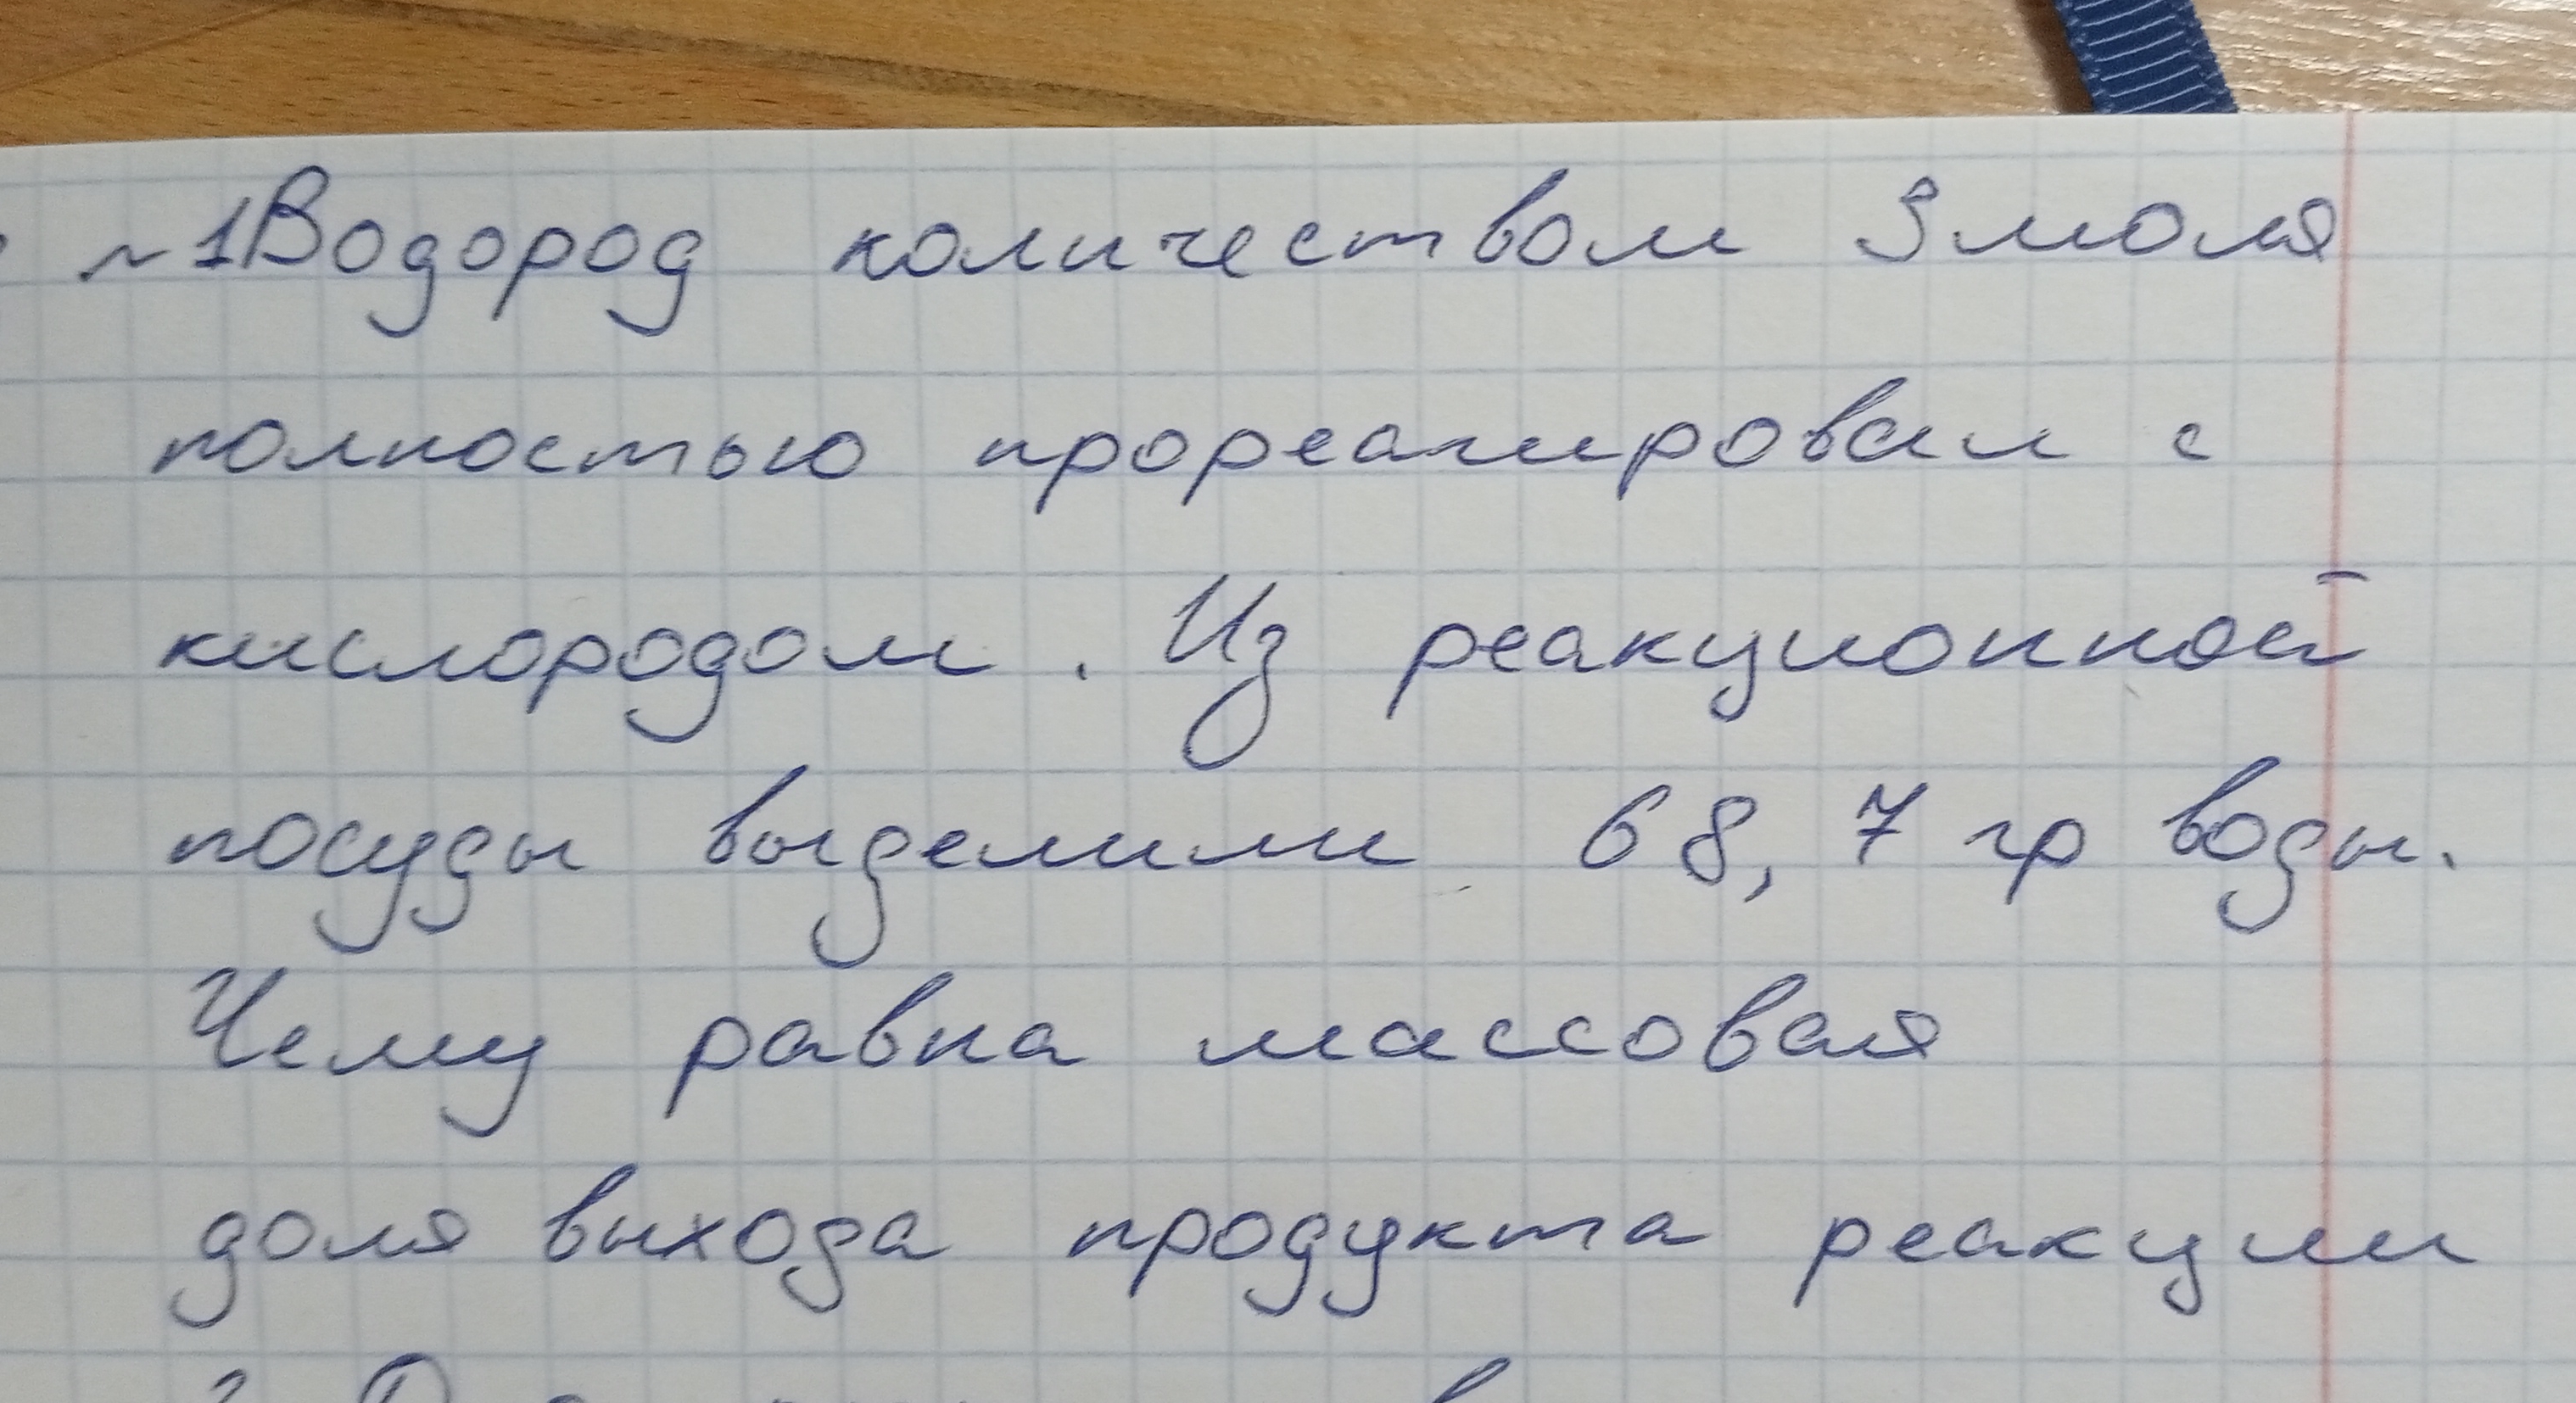 №1 Водород количеством 3 моля
полностью прореагировал с
кислородом. Из реакционной
посуды выделили 68,7 гр воды.
Чему равна массовая
доля выхода продукта реакции